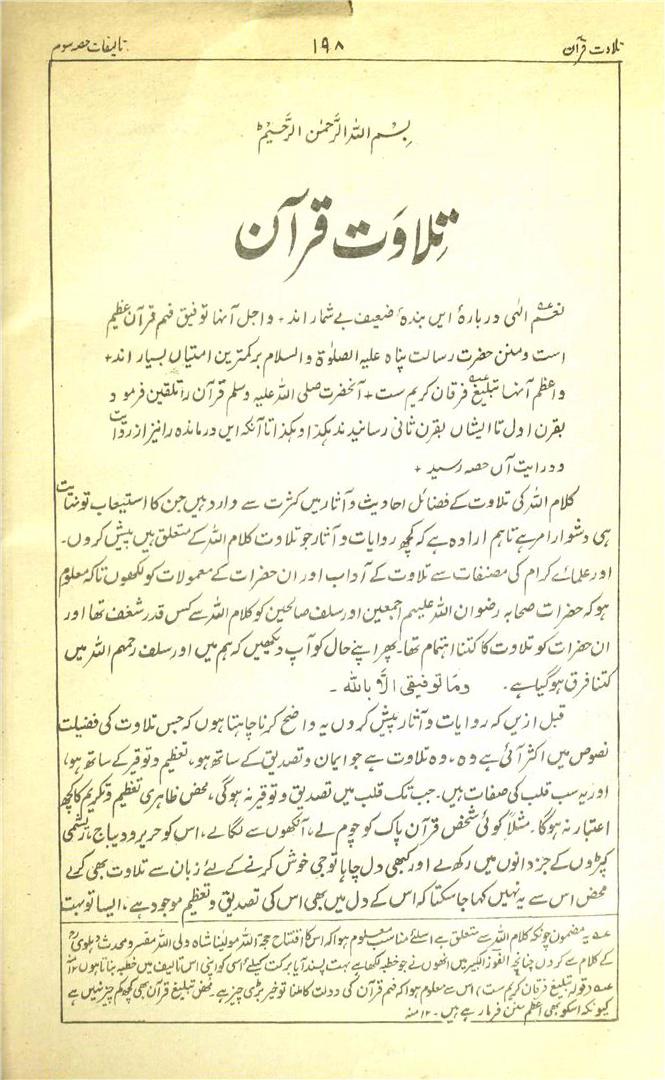 تلاوت قرآن ۱۹۸ تالیفات حصہ سوم
بِسْمِ اللہِ الرَّحْمٰنِ الرَّحِيْمِ
تِلاوَت قرآن
نعم الٰہی دربارۂ ایں بندۂ ضعیف بے شمار اند + و اجل آنہا توفیق فہم قرآن عظیم
است و منن حضرت رسالت پناہ علیہ الصلوٰۃ والسلام بر کمترین امتیاں بسیار اند +
و اعظم آنہا تبلیغ فرقان کریم ست + آنحضرت صلی اللہ علیہ وسلم قرآن را تلقین فرمود
بقرن اول تا ایشاں بقرن ثانی رسانیدند ہکذا و ہکذا تا آنکہ ایں درماندہ را نیز از روایت
و درایت آں حصہ رسید +
کلام اللہ کی تلاوت کے فضائل احادیث و آثار میں کثرت سے وارد ہیں جن کا استیعاب تو نہایت
ہی دشوار امر ہے تاہم ارادہ ہے کہ کچھ روایات و آثار جو تلاوت کلام اللہ کے متعلق ہیں پیش کروں۔
اور علمائے کرام کی مصنفات سے تلاوت کے آداب اور ان حضرات کے معمولات کو لکھوں تاکہ معلوم
ہو کہ حضرات صحابہ رضوان اللہ علیہم اجمعین اور سلف صالحین کو کلام اللہ سے کس قدر شغف تھا اور
ان حضرات کو تلاوت کا کتنا اہتمام تھا۔ پھر اپنے حال کو آپ دیکھیں کہ ہم میں اور سلف رحمہم اللہ میں
کتنا فرق ہوگیا ہے۔ وما توفیقی الّا باللہ ۔
قبل ازیں کہ روایات و آثار پیش کروں یہ واضح کرنا چاہتا ہوں کہ جس تلاوت کی فضیلت
نصوص میں اکثر آئی ہے وہ، وہ تلاوت ہے جو ایمان و تصدیق کے ساتھ ہو، تعظیم و توقیر کے ساتھ ہو،
اور یہ سب قلب کی صفات ہیں۔ جب تک قلب میں تصدیق و توقیر نہ ہوگی، محض ظاہری تعظیم و تکریم کا کچھ
اعتبار نہ ہوگا۔ مثلاً کوئی شخص قرآن پاک کو چوم لے، آنکھوں سے لگالے، اس کو حریر و دیباج، ریشمی
کپڑوں کے جزدانوں میں رکھ لے اور کبھی دل چاہا تو جی خوش کرنے کے لئے زبان سے تلاوت بھی کرلے
محض اس سے یہ نہیں کہا جاسکتا کہ اس کے دل میں بھی اس کی تصدیق و تعظیم موجود ہے، ایسا تو بہت
عہ یہ مضمون چونکہ کلام اللہ سے متعلق ہے اسلئے مناسب معلوم ہوا کہ اس کا افتتاح حجۃ اللہ مولینا شاہ ولی اللہ مفسر و محدث دہلویؒ
کے کلام سے کروں چنانچہ الفوز الکبیر میں انھوں نے جو خطبہ لکھا ہے بہت پسند آیا برکت کیلئے اسی کو اپنی اس تالیف میں خطبہ بناتا ہوں ۱۲ منہ
عہ (قولہ تبلیغ فرقان کریم ست) اس سے معلوم ہوا کہ فہم قرآن کی دولت کا ملنا تو خیر بڑی چیز ہے۔ محض تبلیغ قرآن بھی کچھ کم چیز نہیں ہے
کیونکہ اسکو بھی اعظم منن فرما رہے ہیں۔ ۱۲ منہ